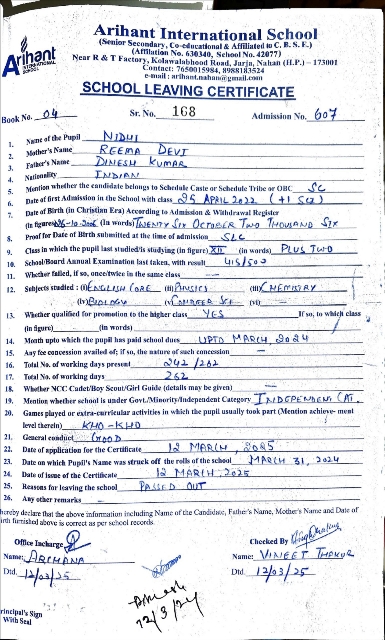 Arihant International School
(Senior Secondary, Co-educational & Affiliated to C. B. S. E.)
(Affilation No. 630340, School No. 42077)
Near R & T Factory, Kolawalabhood Road, Jurja, Nahan (H.P.) – 173001
Contact: 7650015984, 8988183524
e-mail : arihant.nahan@gmail.com
Arihant
INTERNATIONAL SCHOOL
SCHOOL LEAVING CERTIFICATE
Book No. 04 Sr. No. 168 Admission No. 607
1. Name of the Pupil NIDHI
2. Mother's Name REEMA DEVI
3. Father's Name DINESH KUMAR
4. Nationality INDIAN
5. Mention whether the candidate belongs to Schedule Caste or Schedule Tribe or OBC SC
6. Date of first Admission in the School with class 25 APRIL 2022 (+1 SCI)
7. Date of Birth (in Christian Era) According to Admission & Withdrawal Register
(in figures) 26-10-2006 (In words) TWENTY SIX OCTOBER TWO THOUSAND SIX
8. Proof for Date of Birth submitted at the time of admission SLC
9. Class in which the pupil last studied/is studying (in figure) XII (in words) PLUS TWO
10. School/Board Annual Examination last taken, with result 415/500
11. Whether failed, if so, once/twice in the same class —
12. Subjects studied : (i) ENGLISH CORE (ii) PHYSICS (iii) CHEMISTRY
(iv) BIOLOGY (v) COMPUTER SCI (vi) —
13. Whether qualified for promotion to the higher class YES If so, to which class
(in figure) (in words)
14. Month upto which the pupil has paid school dues UPTO MARCH, 2024
15. Any fee concession availed of; if so, the nature of such concession —
16. Total No. of working days present 242/262
17. Total No. of working days 262
18. Whether NCC Cadet/Boy Scout/Girl Guide (details may be given) —
19. Mention whether school is under Govt./Minority/Independent Category INDEPENDENT CAT.
20. Games played or extra-curricular activities in which the pupil usually took part (Mention achieve- ment
level therein) KHO-KHO
21. General conduct GOOD
22. Date of application for the Certificate 12 MARCH, 2025
23. Date on which Pupil's Name was struck off the rolls of the school MARCH 31, 2024
24. Date of issue of the Certificate 12 MARCH, 2025
25. Reasons for leaving the school PASSED OUT
26. Any other remarks —
hereby declare that the above information including Name of the Candidate, Father's Name, Mother's Name and Date of
irth furnished above is correct as per school records.
Office Incharge Checked By
Name: ARCHANA Name: VINEET THAKUR
Dtd. 12/03/25 Dtd. 12/03/25
12/3/24
rincipal's Sign
With Seal